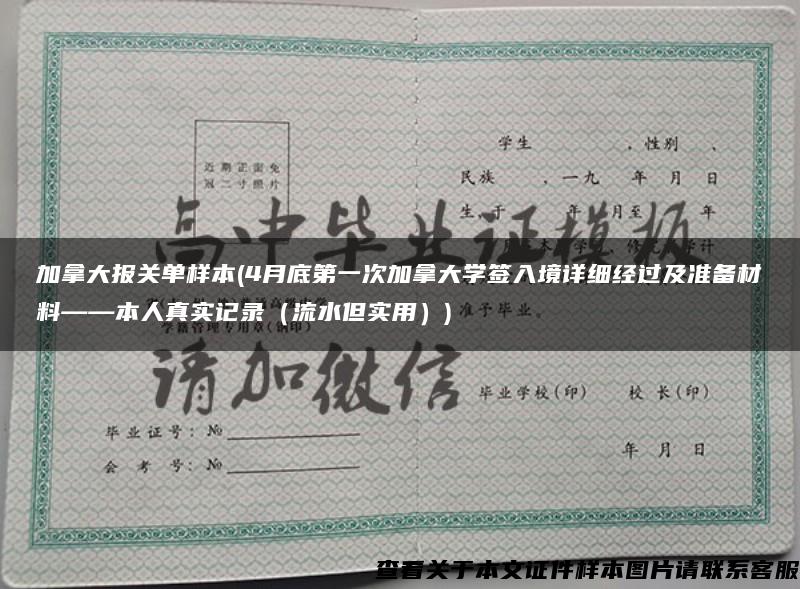 近期正面免
冠二寸照片
学生 ，性别 、
民族 、一九 年 月 日
生，于 年 月至 年
高中毕业证模板
加拿大报关单样本(4月底第一次加拿大学签入境详细经过及准备材
料——本人真实记录（流水但实用）)
学籍管理专用章(钢印)
准予毕业。
请加微信
毕业学校(印) 校长(印)
毕业证号：№
会考号：№
年 月 日
查看关于本文证件样本图片请联系客服